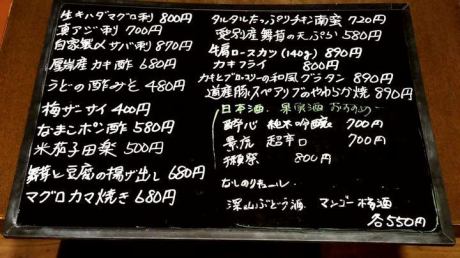 生キハダマグロ刺 800円
真アジ刺 700円
自家製〆サバ刺 870円
厚岸産カキ酢 680円
うどの酢みそ 480円
梅ザーサイ 400円
なまこポン酢 580円
米茄子田楽 500円
舞茸と豆腐の揚げ出し 680円
マグロカマ焼き 680円
タルタルたっぷりチキン南蛮 720円
愛別産舞茸の天ぷら 580円
牛肩ロースカツ(140g) 890円
カキフライ 800円
カキとブロッコリーの和風グラタン 890円
道産豚スペアリブのやわらか焼 890円
日本酒、果実酒 おすすめ
酔心 純米吟醸 700円
景虎 超辛口 700円
獺祭 800円
なしのリキュール
深山ぶどう酒 マンゴー梅酒
各550円